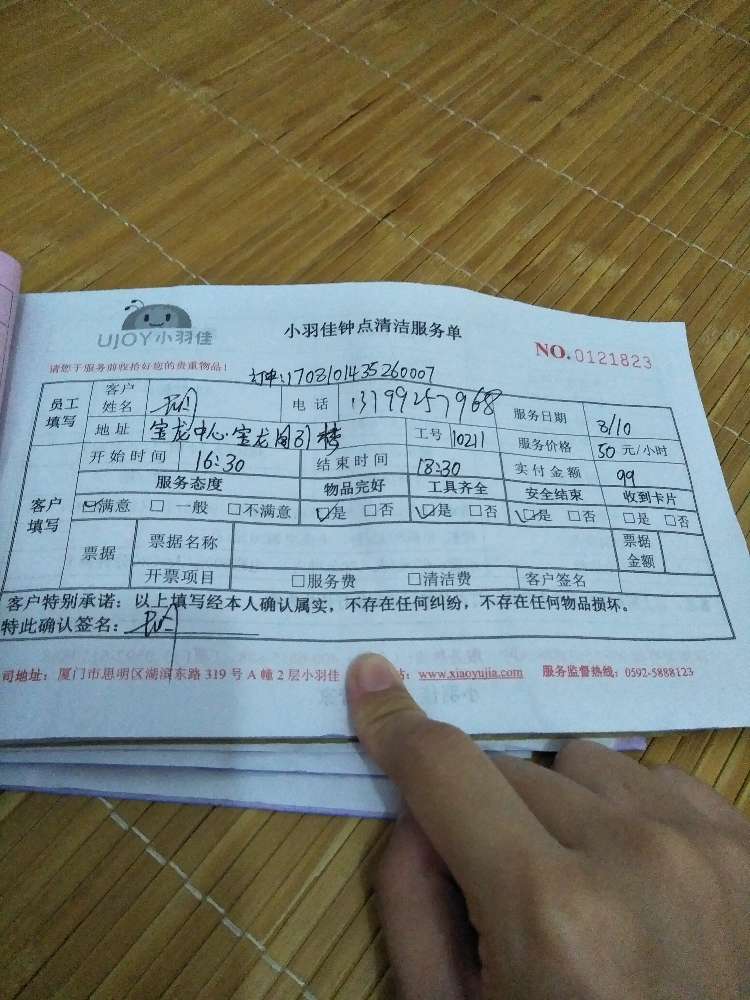 UJOY小羽佳
小羽佳钟点清洁服务单
NO.0121823
请您于服务前收拾好您的贵重物品！
订单:1703101435260007
员工填写 客户姓名 电话 13799257968 服务日期 3/10
地址 宝龙中心 宝龙 楼 工号 10211 服务价格 50 元/小时
客户填写 开始时间 16:30 结束时间 18:30 实付金额 99
服务态度 物品完好 工具齐全 安全结束 收到卡片
☑满意 □一般 □不满意 ☑是 □否 ☑是 □否 ☑是 □否 □是 □否
票据 票据名称 票据金额
开票项目 □服务费 □清洁费 客户签名
客户特别承诺：以上填写经本人确认属实，不存在任何纠纷，不存在任何物品损坏。
特此确认签名：
司地址：厦门市思明区湖滨东路 319 号 A 幢 2 层小羽佳 站：www.xiaoyujia.com 服务监督热线：0592-5888123